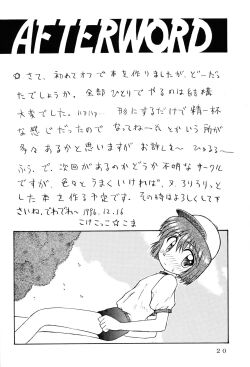 AFTERWORD
☆さて、初めてオフで本を作りましたが、どーだっ
たでしょうか。全部ひとりでやるのは結構
大変でした。ハフハフ… 形にするだけで精一杯
な感じだったので なってねーぞとかいう所が
多々あるかと思いますが お許しを〜 ひゅるる〜
ふう。で、次回があるのかどうか不明なサークル
ですが、色々とうまくいければ、又、ろりろりっと
した本を作る予定です。その時はよろしくして下
さいね。でわでわ〜 1996.12.16
こけこっこ☆こま
20